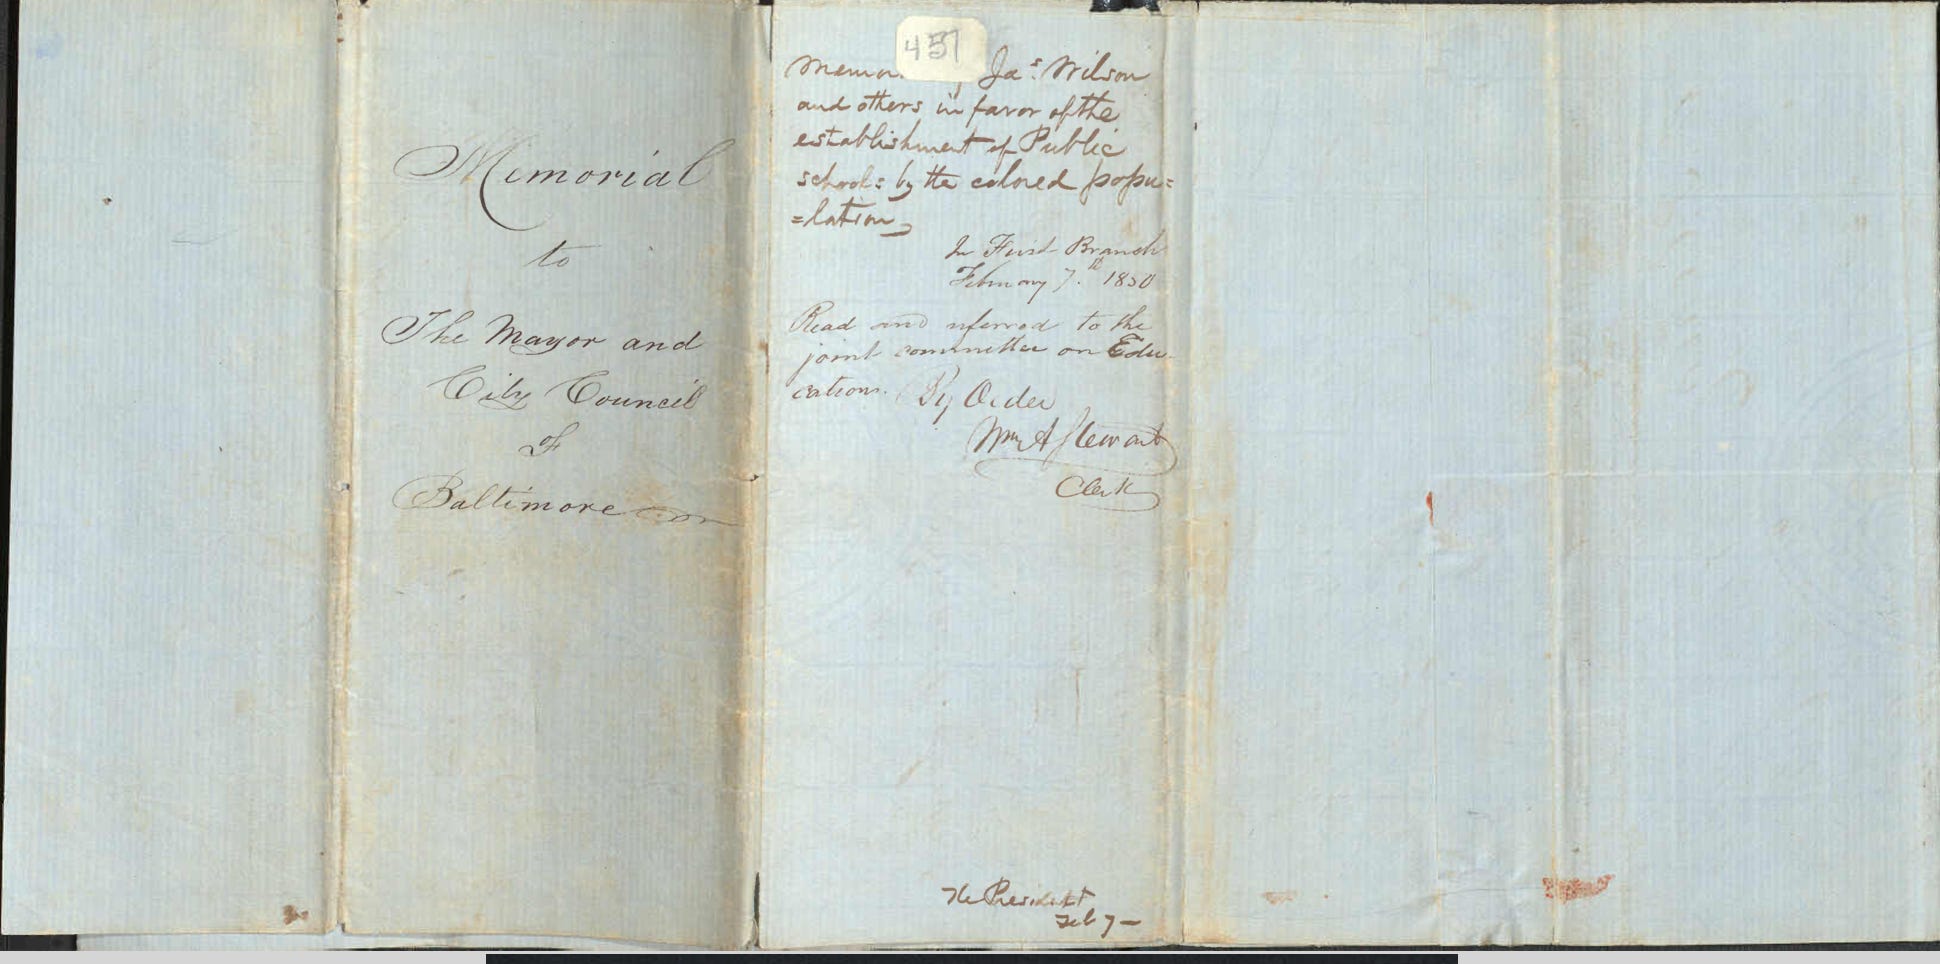 Memorial
to
The Mayor and
City Council
of
Baltimore
457
Memor Jas. Wilson
and others in favor of the
establishment of Public
schools by the colored popu=
=lation
In First Branch
February 7th. 1850
Read and referred to the
joint committee on Edu-
cation. By Order
Wm A Stewart
Clerk
The President
Feb 7 –